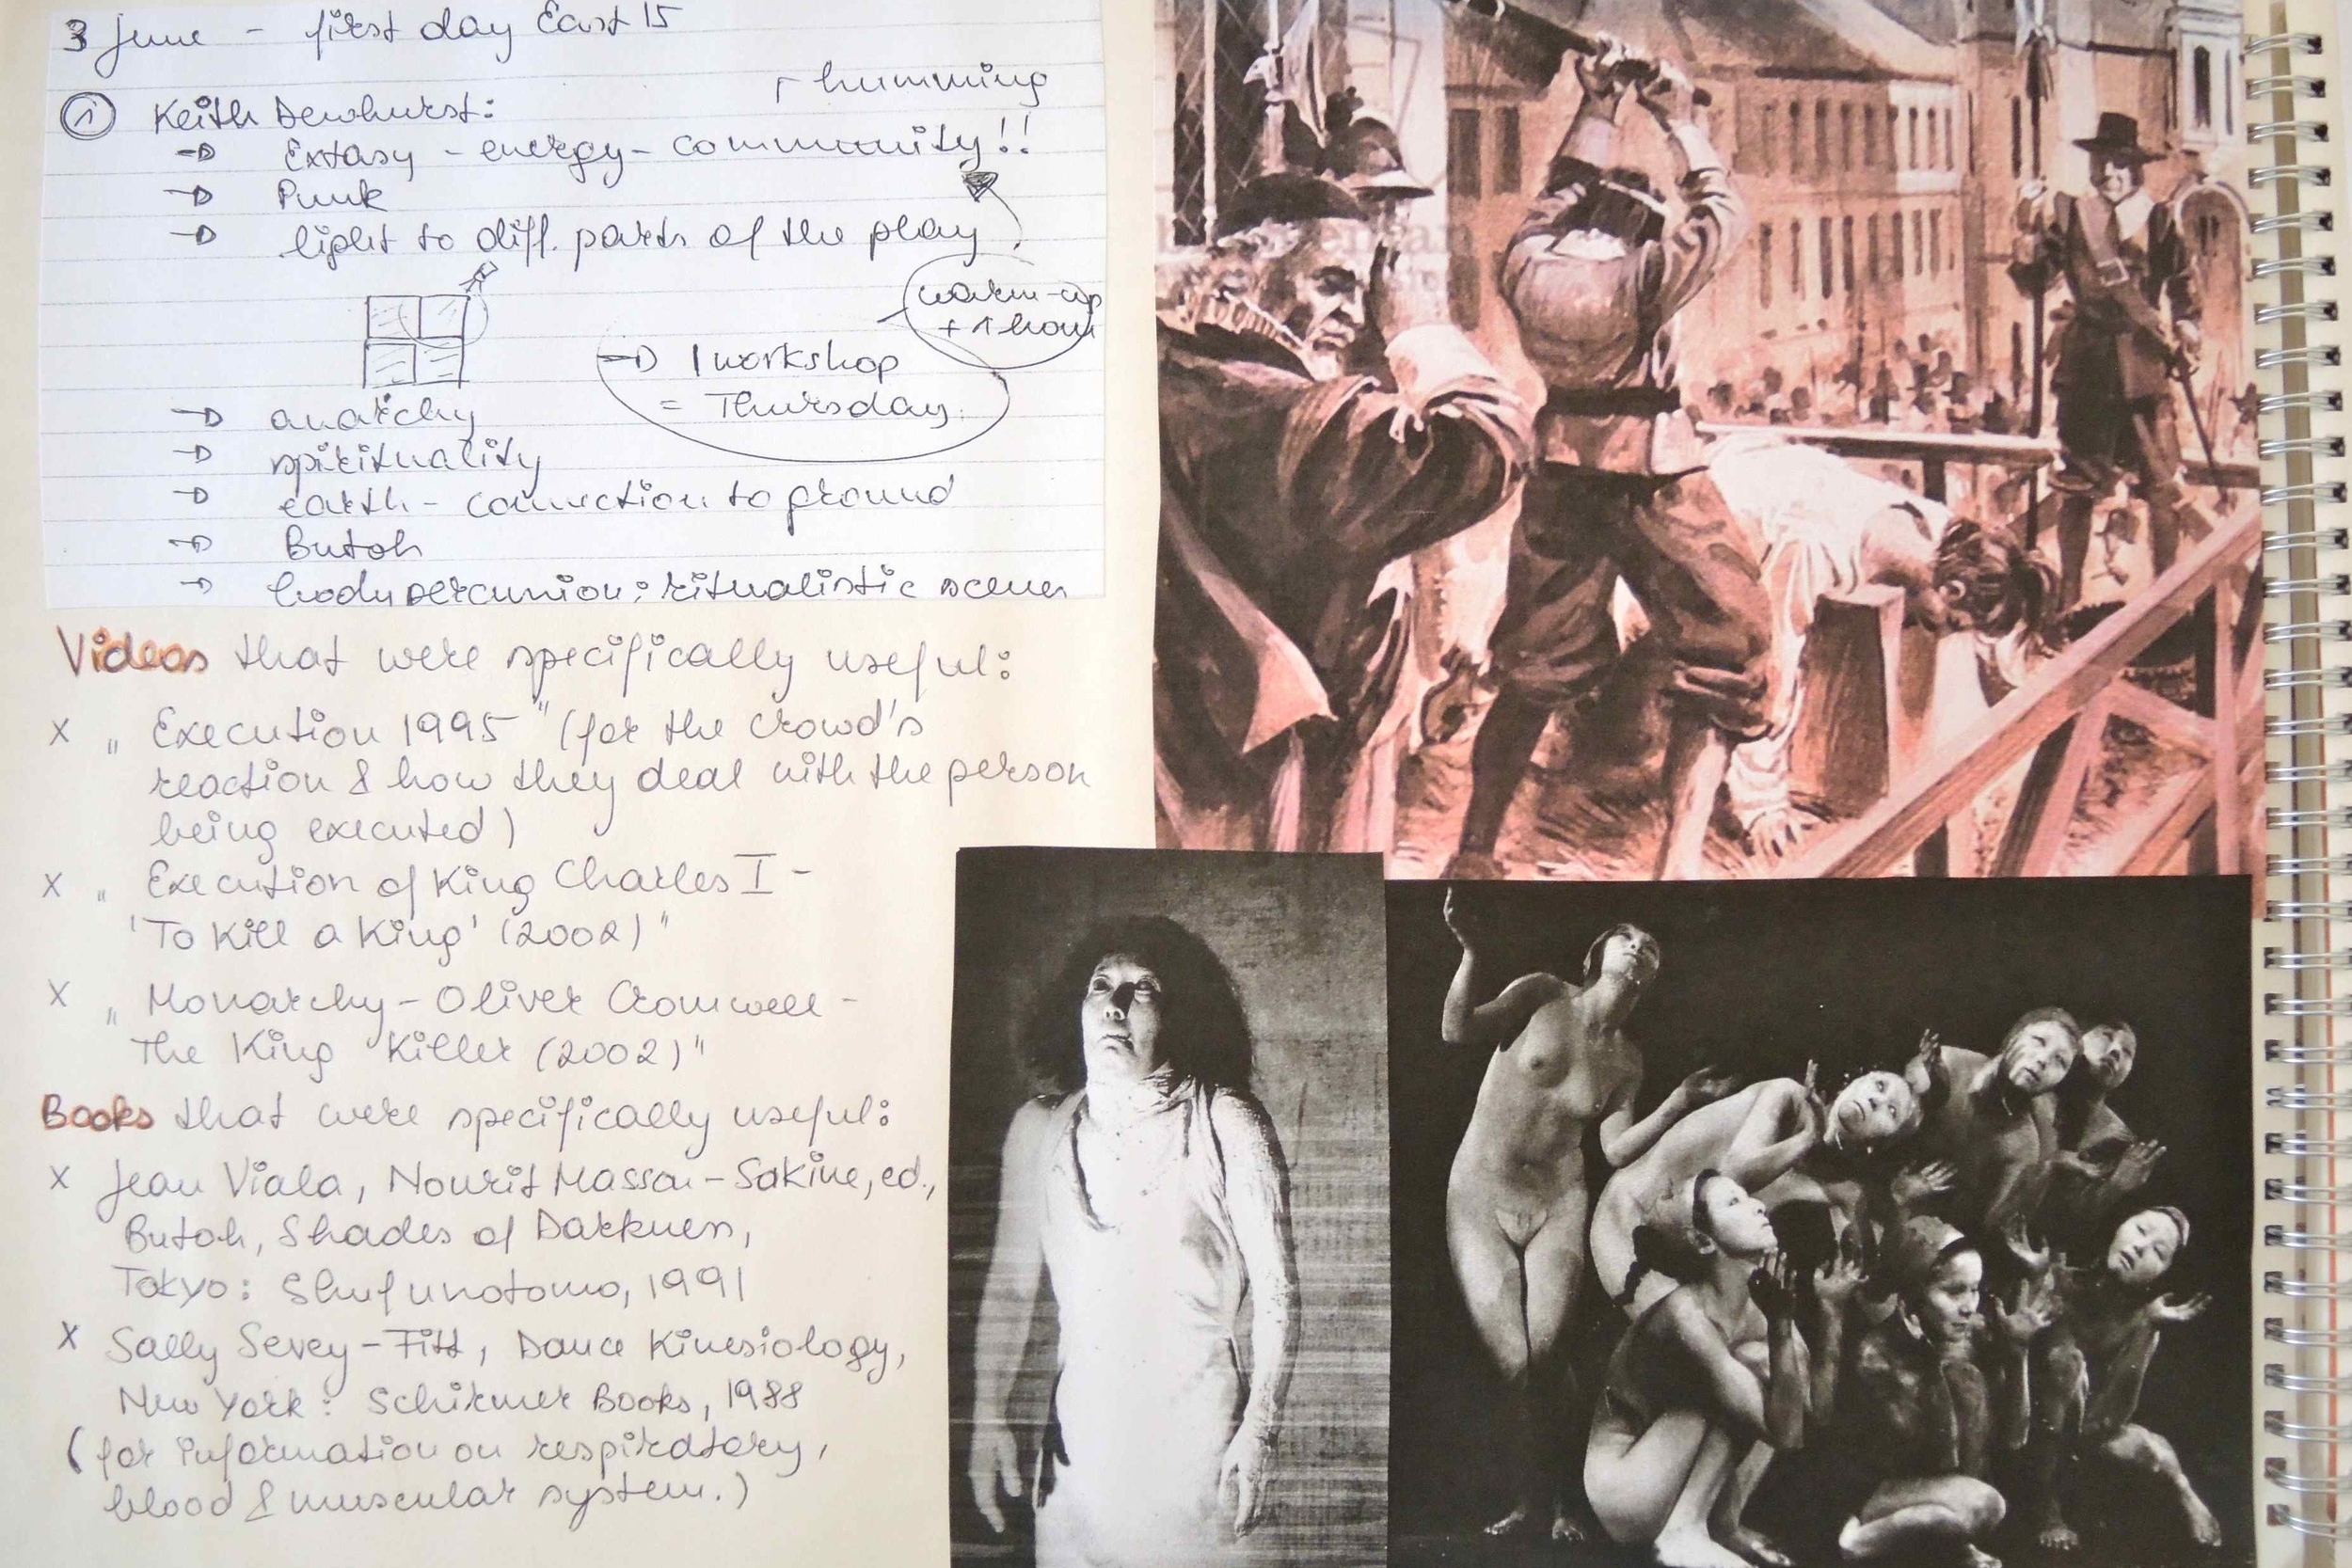 3 June - first day East 15
humming
① Keith Dewhurst:
Extasy - energy - community!!
Punk
light to diff. parts of the play
warm-up
+ 1 hour
1 workshop
= Thursday
anarchy
spirituality
earth - connection to ground
Butoh
body percussion: ritualistic scenes
Videos that were specifically useful:
x „Execution 1995" (for the crowd's
reaction & how they deal with the person
being executed)
x „Execution of King Charles I -
'To Kill a King' (2002)"
x „Monarchy - Oliver Cromwell -
The King Killer (2002)"
Books that were specifically useful:
x Jean Viala, Nourit Masson-Sekine, ed.,
Butoh, Shades of Darkness,
Tokyo: Shufunotomo, 1991
x Sally Sevey-Fitt, Dance Kinesiology,
New York: Schirmer Books, 1988
(for information on respiratory,
blood & muscular system.)